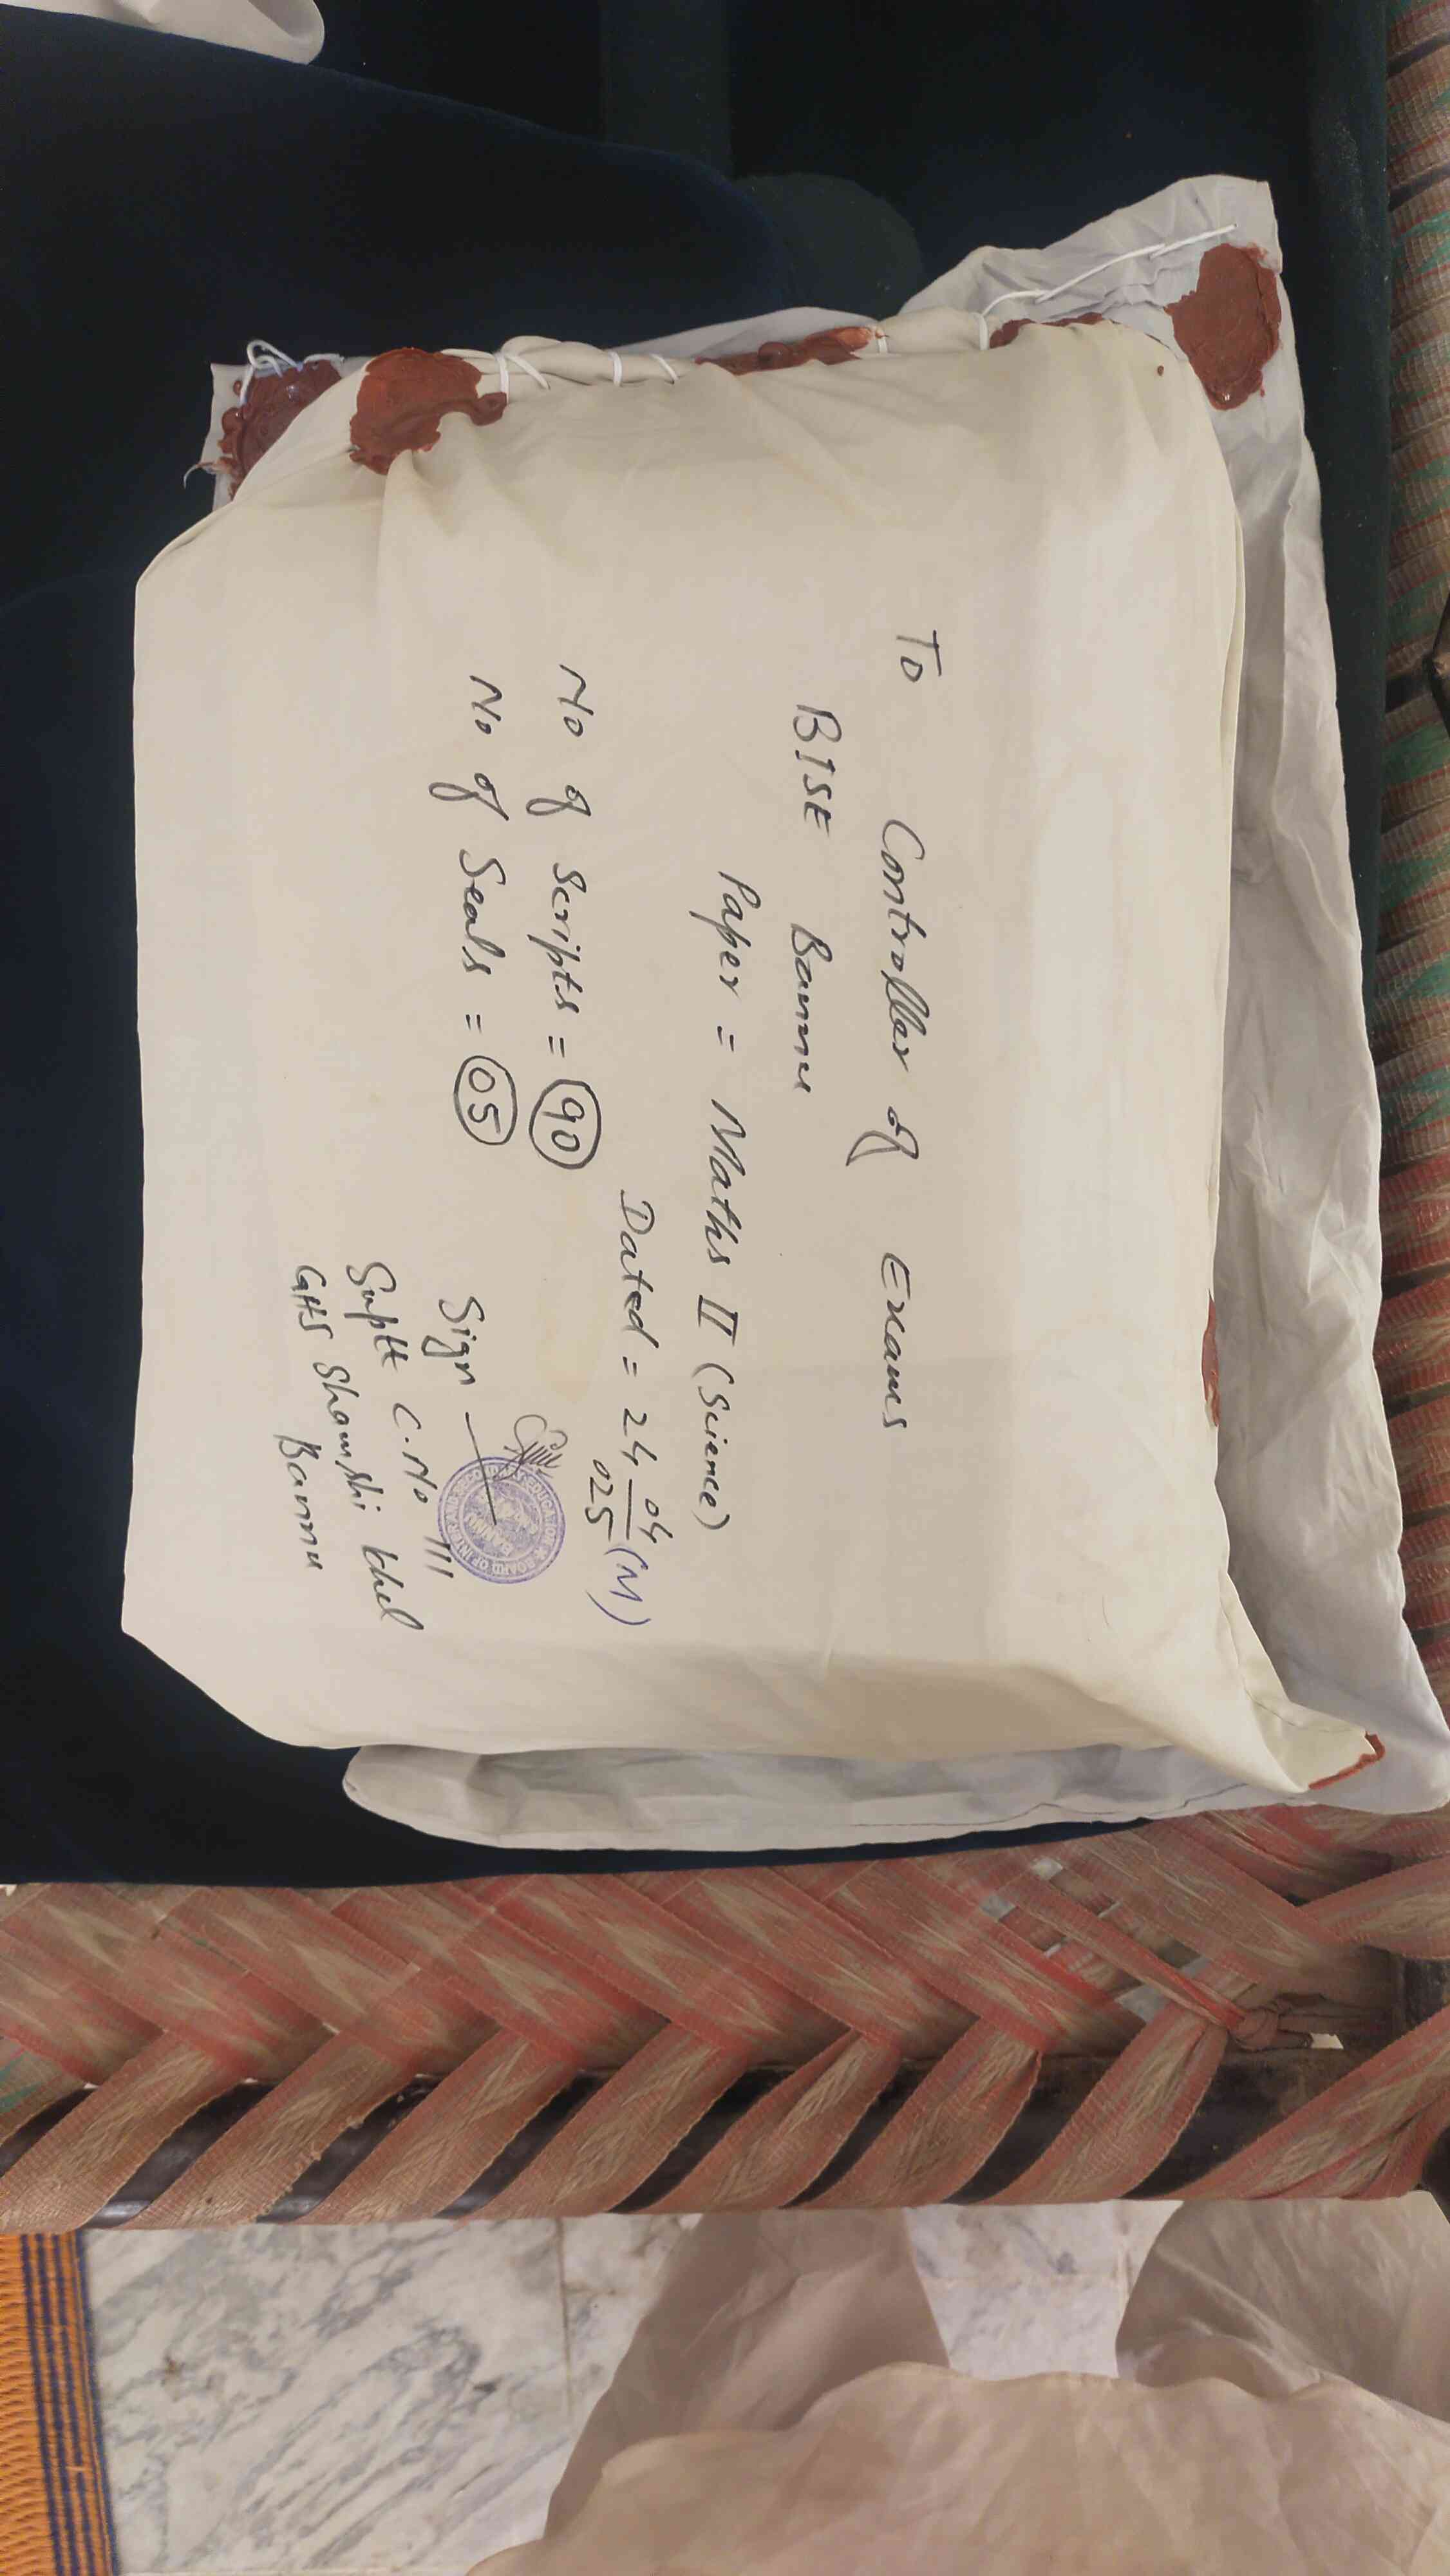 To Controller of Exams
BISE Bannu
Paper = Maths II (Science)
Dated = 24 04/025 (M)
No of Scripts = 90
No of Seals = 05
Sign
Suptt C.No 111
GHS Shamshi Khel
Bannu
BOARD OF INTERMEDIATE
EDUCATION
BANNU